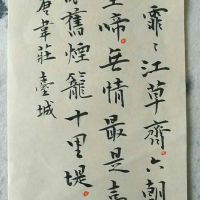 霏〻江草齊六朝
空啼無情最是臺
舊煙籠十里堤
唐韋莊臺城